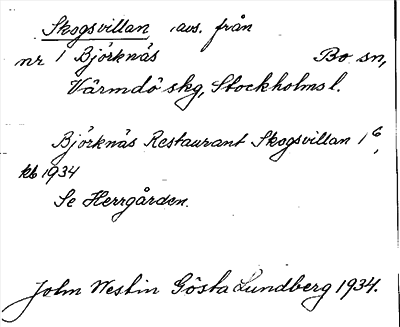 Skogsvillan, avs. från
nr 1 Björknäs Bo sn,
Värmdö skg, Stockholms l.
Björknäs Restaurant Skogsvillan 1 6,
kb 1934
Se Herrgården.
John Westin Gösta Lundberg 1934.